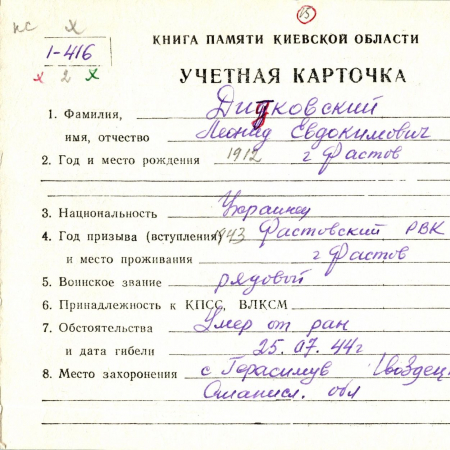 пс х
15
1-416
х 2 х
КНИГА ПАМЯТИ КИЕВСКОЙ ОБЛАСТИ
УЧЕТНАЯ КАРТОЧКА
1. Фамилия, Дицковский
имя, отчество Леонид Евдокимович
2. Год и место рождения 1912 г Фастов
3. Национальность Украинец
4. Год призыва (вступления) 1943 Фастовский РВК
и место проживания г Фастов
5. Воинское звание рядовой
6. Принадлежность к КПСС, ВЛКСМ
7. Обстоятельства Умер от ран
и дата гибели 25.07.44г
8. Место захоронения с Герасимув Гвоздец
Станисл. обл